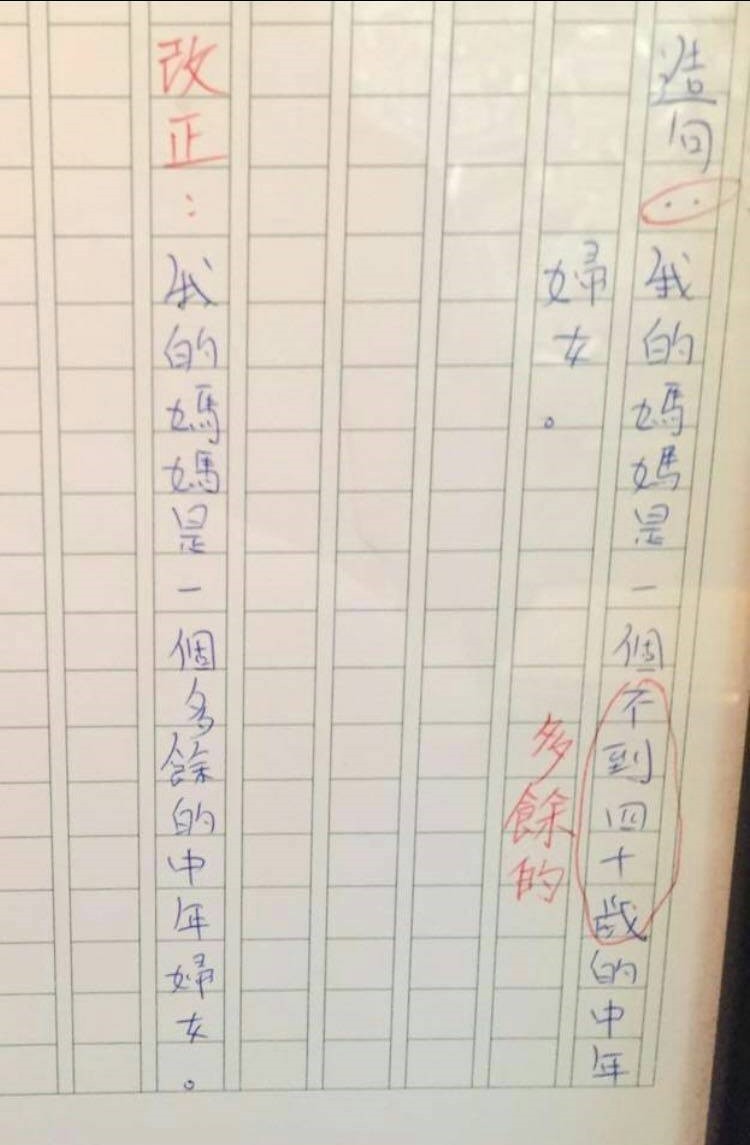 造句：我的媽媽是一個不到四十歲的中年
婦女。
多餘的
改正：我的媽媽是一個多餘的中年婦女。